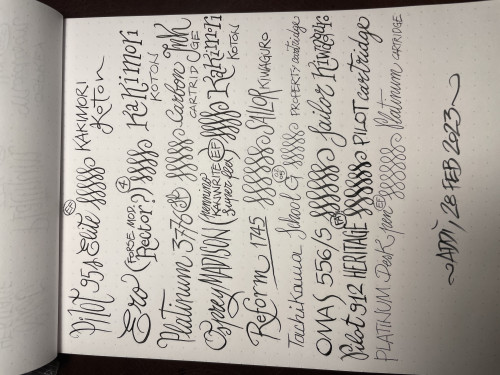 PiLOT 95s Elite KAKIMORI Koton
Ero (FORSE MOD. Rector?) 4 KaKimori KOTON
Platinum 3776 SF Carbon INK CARTRIDGE
Osprey MADISON (KANWRITE EF Super flex) Kakimori KOTON
Reform 1745 SAILOR KIWAGURO
Tachikawa School G PROPERTY cartridge
OMAS 556/S Sailor Kiwaguro
Pilot 912 HERITAGE FA PILOT cartridge
PLATINUM Desk pen EF Platinum CARTRIDGE
28 FEB 2023~